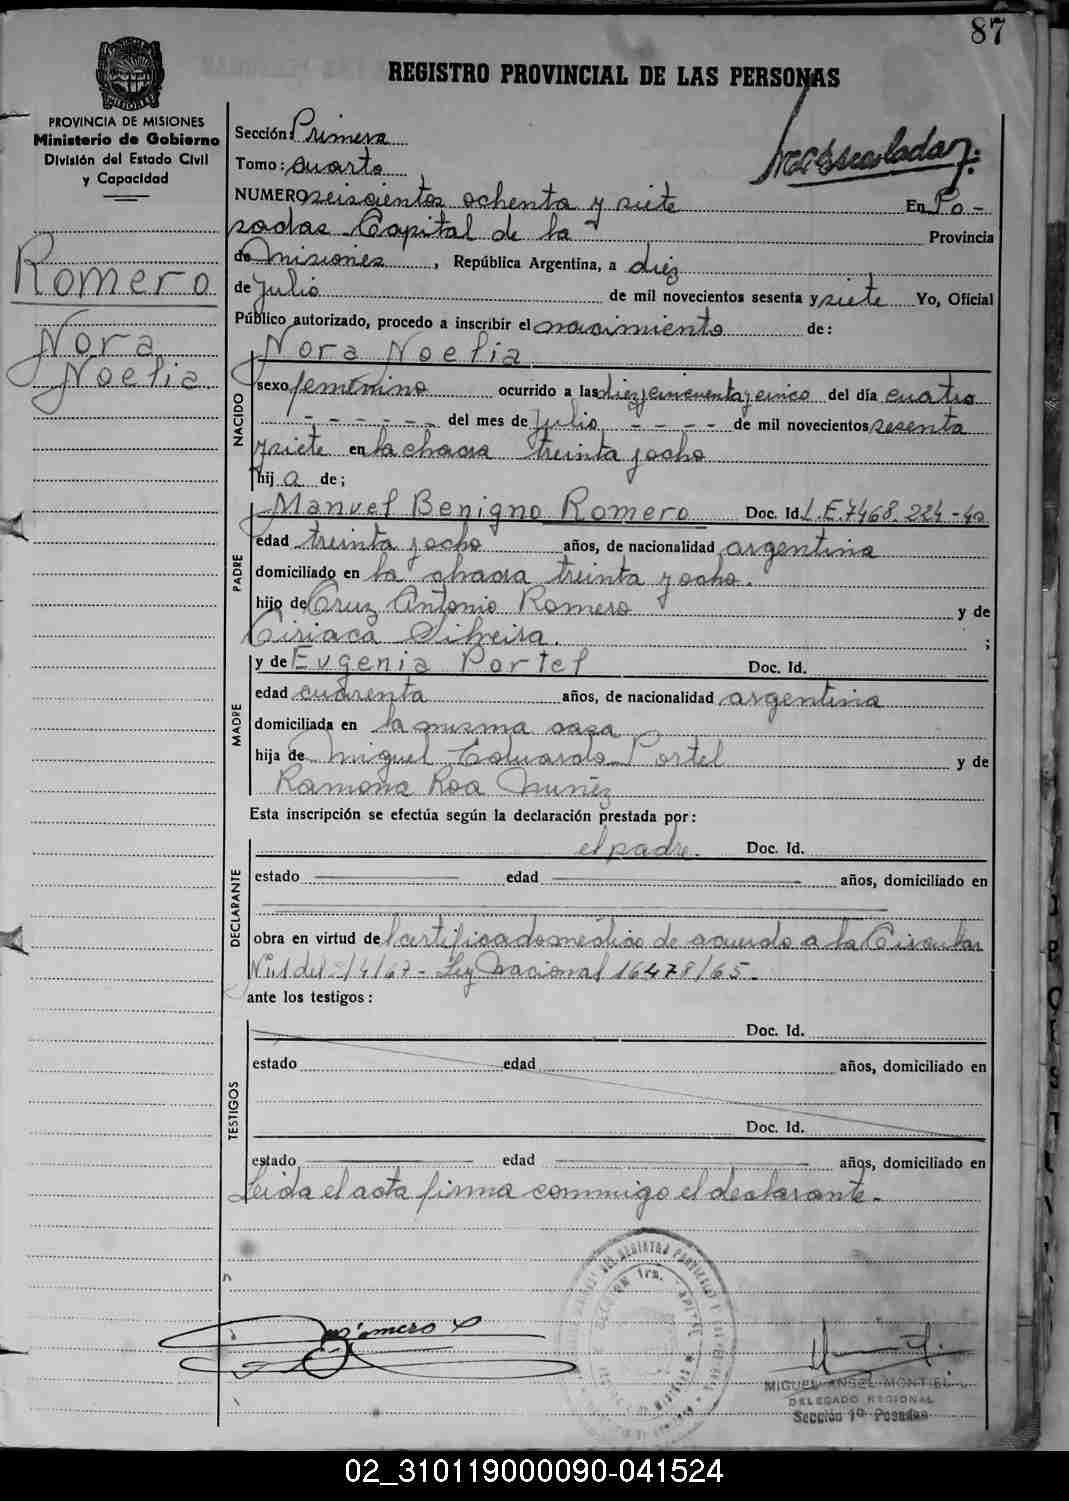 87
REGISTRO PROVINCIAL DE LAS PERSONAS
MISIONES
PROVINCIA DE MISIONES
Ministerio de Gobierno
División del Estado Civil
y Capacidad
Sección: Primera
Tomo: cuarto
NUMERO seiscientos ochenta y siete En Po-
sadas Capital de la Provincia
de Misiones, República Argentina, a diez
de Julio de mil novecientos sesenta y siete Yo, Oficial
Público autorizado, procedo a inscribir el nacimiento de:
Romero
Nora
Noelia
NACIDO
Nora Noelia
sexo femenino ocurrido a las diez y cincuenta y cinco del día cuatro
- - - - - - del mes de Julio - - - - de mil novecientos sesenta
y siete en la chacra treinta y ocho
hij a de;
PADRE
Manuel Benigno Romero Doc. Id. L.E. 7468.224-
edad treinta y ocho años, de nacionalidad argentina
domiciliado en la chacra treinta y ocho.
hijo de Cruz Antonio Romero y de
Ciriaca Silveira. ;
MADRE
y de Eugenia Portel Doc. Id.
edad cuarenta años, de nacionalidad argentina
domiciliada en la misma casa
hija de Miguel Eduardo Portel y de
Ramona Roa Nuñez
Esta inscripción se efectúa según la declaración prestada por:
DECLARANTE
el padre. Doc. Id.
estado edad años, domiciliado en
obra en virtud de certificado médico de acuerdo a la Circular
Nº 1 del /4/67 - Ley Nacional 16478/65 -
ante los testigos:
TESTIGOS
Doc. Id.
estado edad años, domiciliado en
Doc. Id.
estado edad años, domiciliado en
Leida el acta firma conmigo el declarante.-
Romero
MIGUEL ANGEL MONTIEL
DELEGADO REGIONAL
Sección 1º Posadas
02_310119000090-041524